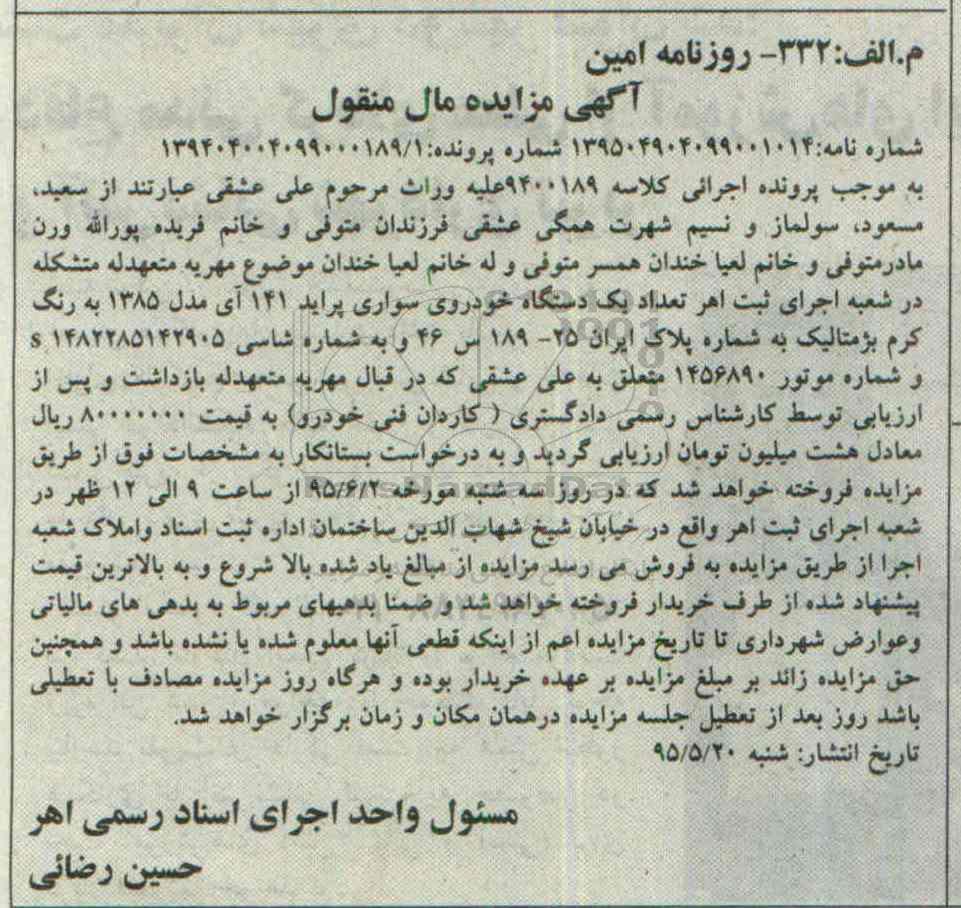 م.الف:۳۳۲- روزنامه امین
آگهی مزایده مال منقول
شماره نامه:۱۳۹۵۰۴۹۰۴۰۹۹۰۰۱۰۱۴ شماره پرونده:۱۳۹۴۰۴۰۰۴۰۹۹۰۰۰۱۸۹/۱
به موجب پرونده اجرائی کلاسه ۹۴۰۰۱۸۹علیه وراث مرحوم علی عشقی عبارتند از سعید،
مسعود، سولماز و نسیم شهرت همگی عشقی فرزندان متوفی و خانم فریده پورالله ورن
مادرمتوفی و خانم لعیا خندان همسر متوفی و له خانم لعیا خندان موضوع مهریه متعهدله متشکله
در شعبه اجرای ثبت اهر تعداد یک دستگاه خودروی سواری پراید ۱۴۱ آی مدل ۱۳۸۵ به رنگ
کرم بژمتالیک به شماره پلاک ایران ۲۵- ۱۸۹ س ۴۶ و به شماره شاسی s ۱۴۸۲۲۸۵۱۴۲۹۰۵
و شماره موتور ۱۴۵۶۸۹۰ متعلق به علی عشقی که در قبال مهریه متعهدله بازداشت و پس از
ارزیابی توسط کارشناس رسمی دادگستری ( کاردان فنی خودرو) به قیمت ۸۰۰۰۰۰۰۰ ریال
معادل هشت میلیون تومان ارزیابی گردید و به درخواست بستانکار به مشخصات فوق از طریق
مزایده فروخته خواهد شد که در روز سه شنبه مورخه ۹۵/۶/۲ از ساعت ۹ الی ۱۲ ظهر در
شعبه اجرای ثبت اهر واقع در خیابان شیخ شهاب الدین ساختمان اداره ثبت اسناد واملاک شعبه
اجرا از طریق مزایده به فروش می رسد مزایده از مبالغ یاد شده بالا شروع و به بالاترین قیمت
پیشنهاد شده از طرف خریدار فروخته خواهد شد و ضمنا بدهیهای مربوط به بدهی های مالیاتی
وعوارض شهرداری تا تاریخ مزایده اعم از اینکه قطعی آنها معلوم شده یا نشده باشد و همچنین
حق مزایده زائد بر مبلغ مزایده بر عهده خریدار بوده و هرگاه روز مزایده مصادف با تعطیلی
باشد روز بعد از تعطیل جلسه مزایده درهمان مکان و زمان برگزار خواهد شد.
تاریخ انتشار: شنبه ۹۵/۵/۲۰
مسئول واحد اجرای اسناد رسمی اهر
حسین رضائی